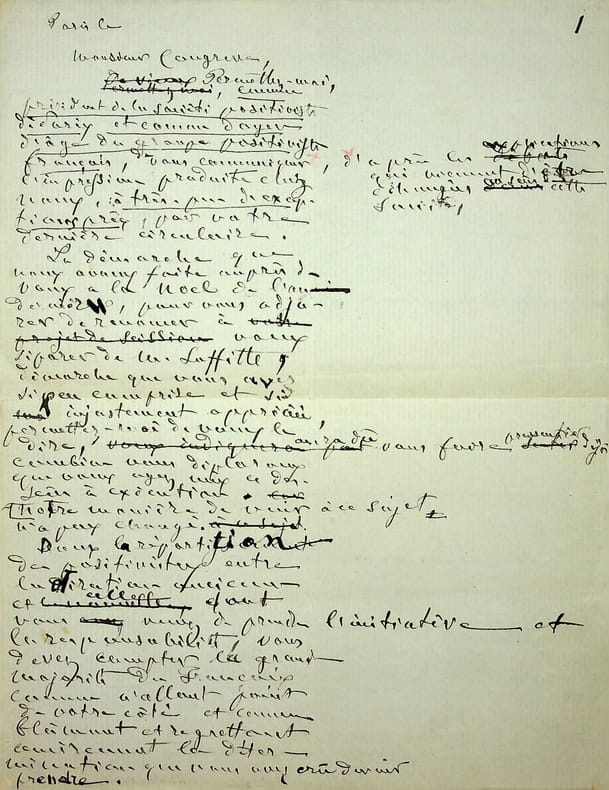 Paris le
1
Monsieur Congreve,
Permettez-moi,
Permettez moi, comme
président de la Société positiviste
de Paris et comme doyen
d'âge du groupe positiviste
français, de vous communiquer, d'après les explications
l'impression produite chez qui viennent d'être
nous, à très peu d'excep- échangées cette
tions près, par votre Société,
dernière circulaire.
La démarche que
nous avons faite auprès de
vous à la Noël de l'an
dernier, pour vous adju-
rer de renoncer à
projet de scission vous
séparer de M. Laffitte,
démarche que vous avez
si peu comprise et si
injustement appréciée,
permettez-moi de vous le
dire, aura dû vous faire pressentir déjà
combien nous déplorons
que vous ayez mis ce des-
sein à exécution.
Notre manière de voir à ce sujet
n'a pas changé.
Dans la répartition
des positivistes entre
la direction ancienne
et celle dont
vous venez de prendre l'initiative et
la responsabilité, vous
devez compter la grande
majorité des Français
comme n'allant point
de votre côté et comme
blâmant et regrettant
la déter-
mination que vous avez crû devoir
prendre.